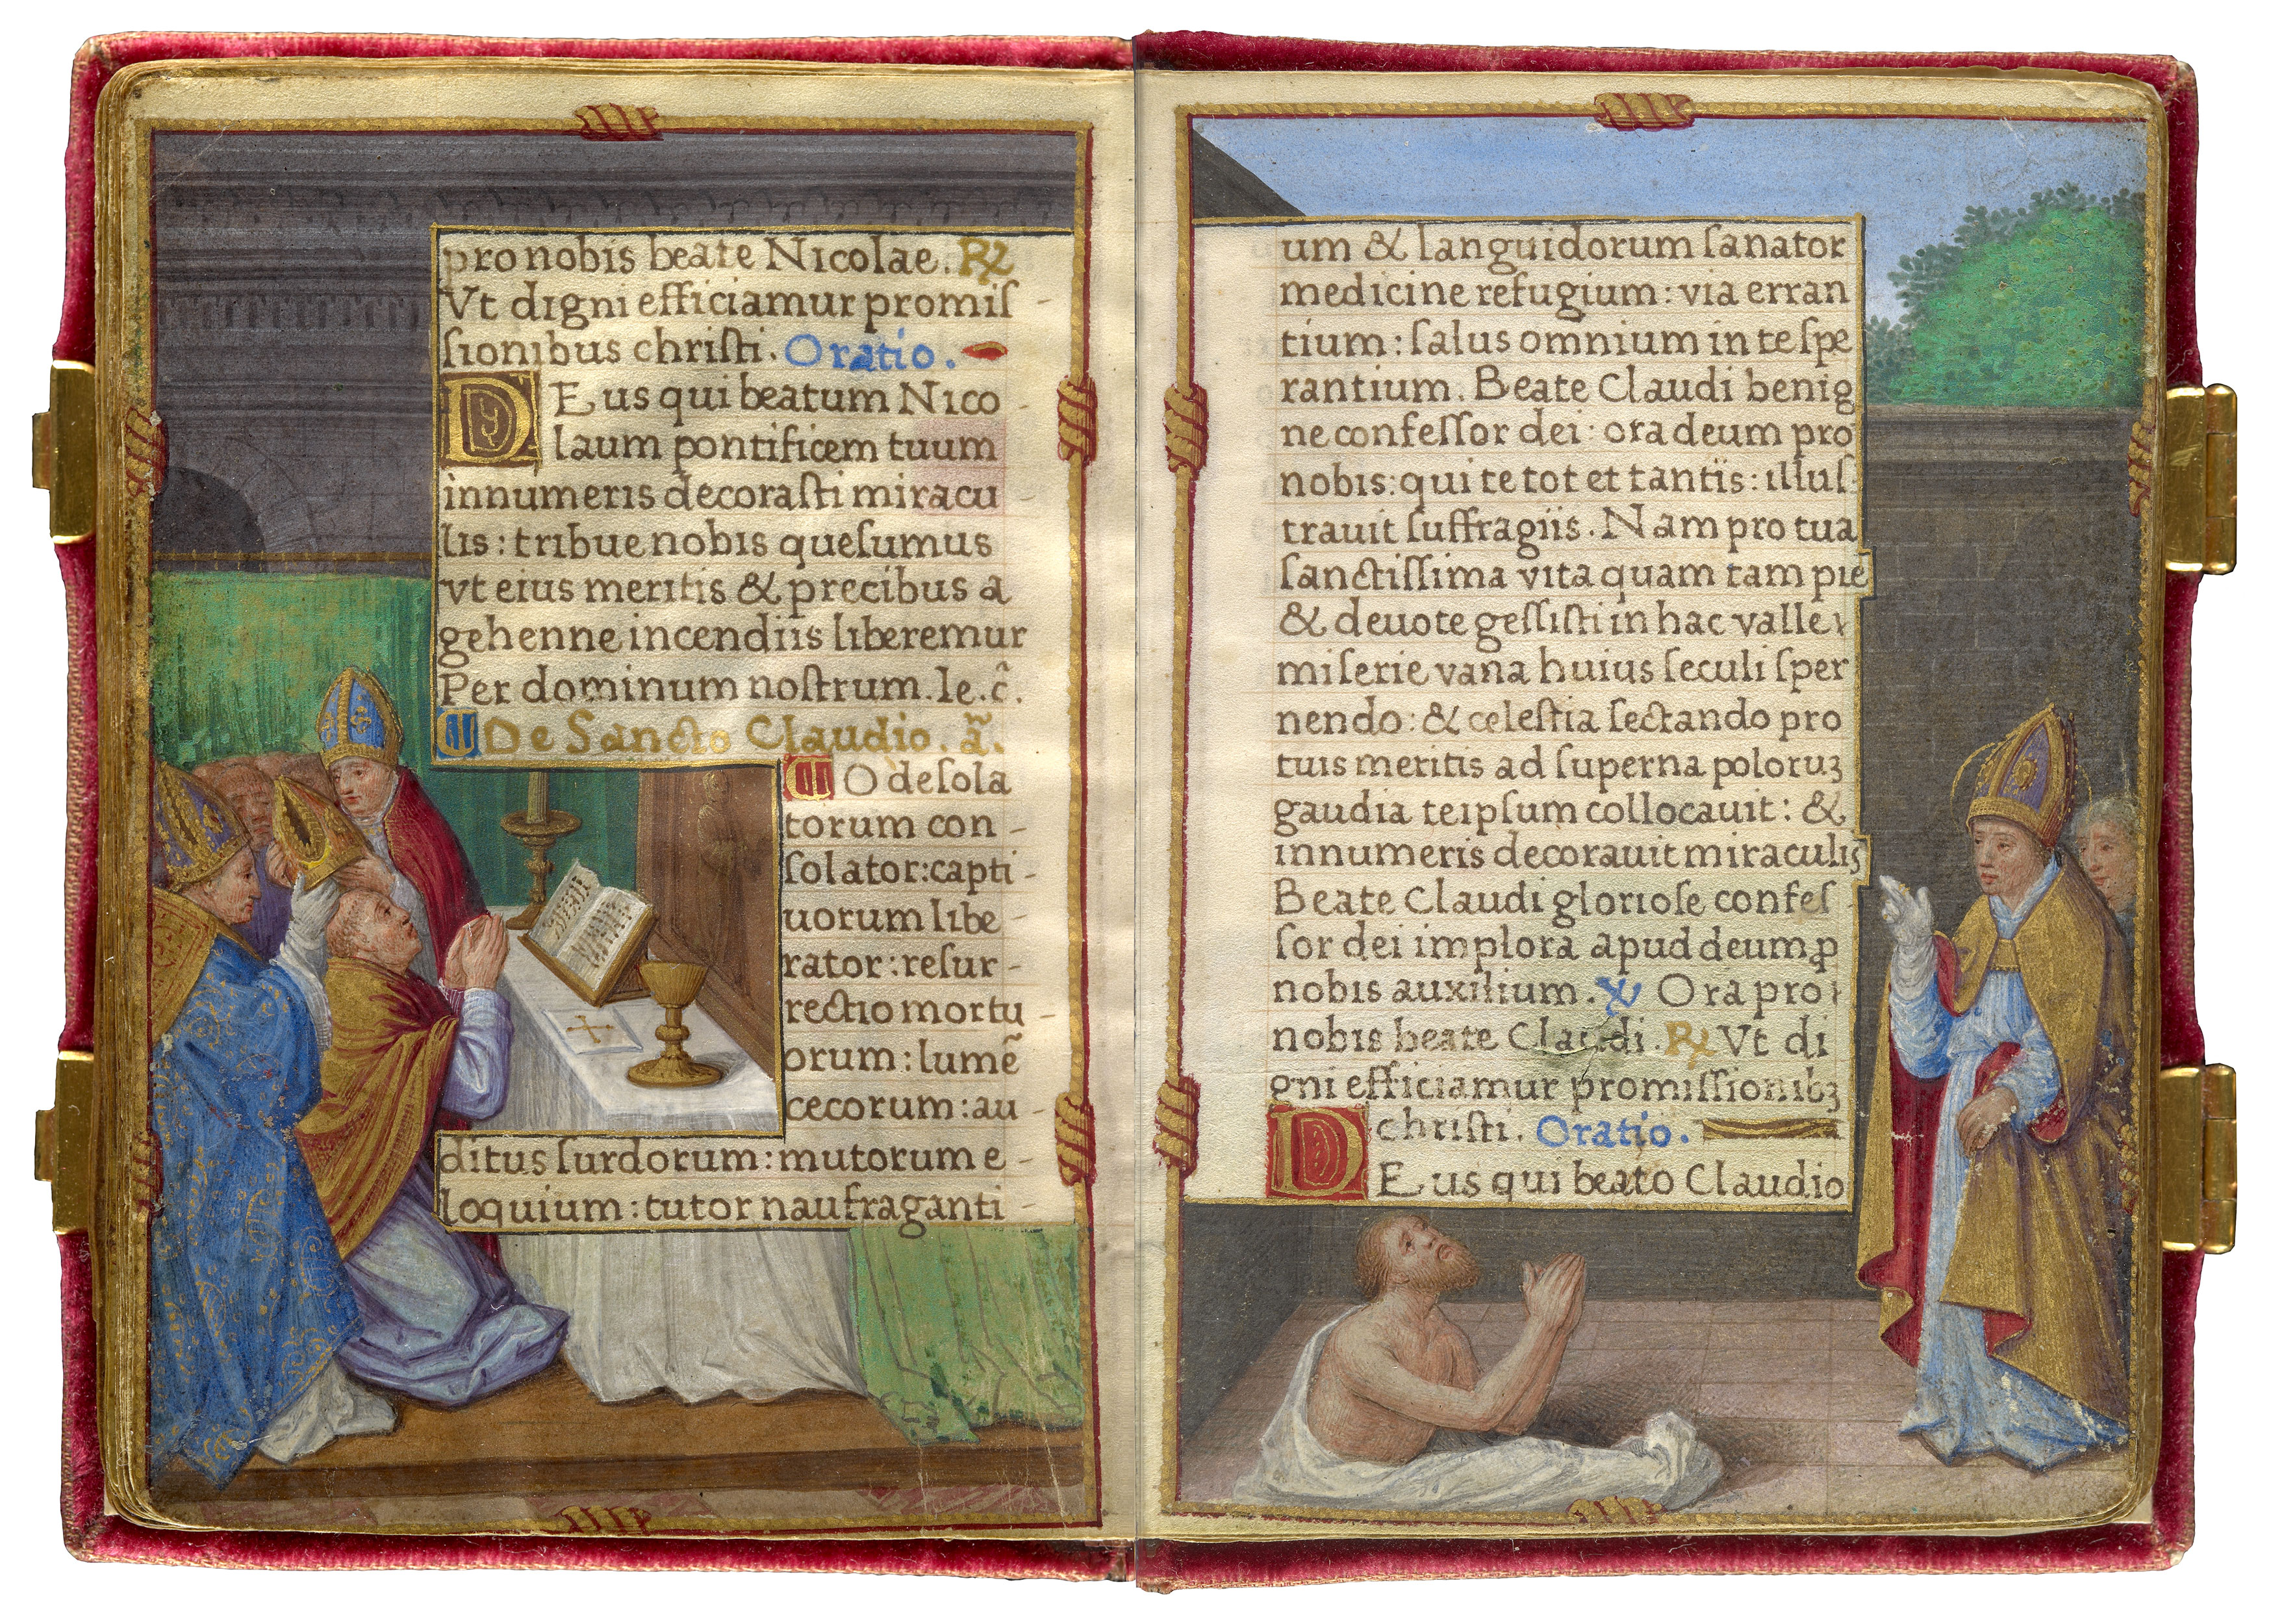 pro nobis beate Nicolae. ℟
Vt digni efficiamur promiſ-
ſionibus chriſti. Oratio.
DEus qui beatum Nico-
laum pontificem tuum
innumeris decoraſti miracu
lis: tribue nobis queſumus
vt eius meritis & precibus a
gehenne incendiis liberemur
Per dominum noſtrum. Ie. c̃.
De Sancto Claudio. ã.
O deſola
torum con-
ſolator: capti-
uorum libe-
rator: reſur-
rectio mortu-
orum: lumẽ
cecorum: au-
ditus ſurdorum: mutorum e-
loquium: tutor naufraganti-
um & languidorum ſanator
medicine refugium: via erran
tium: ſalus omnium in te ſpe
rantium. Beate Claudi benig
ne confeſſor dei: ora deum pro
nobis: qui te tot et tantïs: illuſ-
trauit ſuffragiis. Nam pro tua
ſanctiſſima vita quam tam pie
& deuote geſſiſti in hac valle
miſerie vana huius ſeculi ſper
nendo: & celeſtia ſectando pro
tuis meritis ad ſuperna poloruꝫ
gaudia teipſum collocauit: &
innumeris decorauit miraculis
Beate Claudi glorioſe confeſ-
ſor dei implora apud deum ꝓ
nobis auxilium. ℣ Ora pro
nobis beate Claudi. ℟ Vt di
gni efficiamur promiſſionibꝫ
chriſti. Oratio.
DEus qui beato Claudio